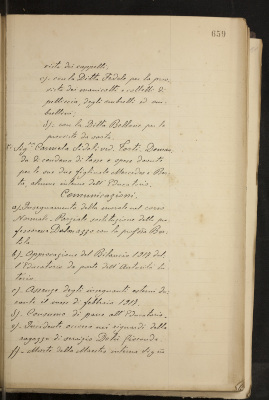 659
vista dei cappelli;
c). con la Ditta Fedele per la prov-
vista dei manicotti e colletti di
pelliccia, degli ombrelli ed om-
brellini;
d). con la Ditta Bellano per la
provvista di carta.
Sig.ra Consuela vid. Doman-
da di condono di tasse e spese dovute
per le sue due figliuole Mercedes e Ber-
ta, alunne interne dell'Educatorio.
Comunicazioni.
a). Insegnamento della nei corsi
Normali. Parziale sostituzione della pro-
fessoressa Dalmazzo con la prof.ssa Ber-
b). Approvazione del Bilancio 1919 del-
l'Educatorio da parte dell'Autorità tu-
toria.
c). Assenze degli insegnanti esterni du-
rante il mese di febbraio 1919.
d). Consumo di pane all'Educatorio.
e). Incidente occorso nei riguardi della
ragazza di servizio
f). Morte della Maestra interna Sig.na